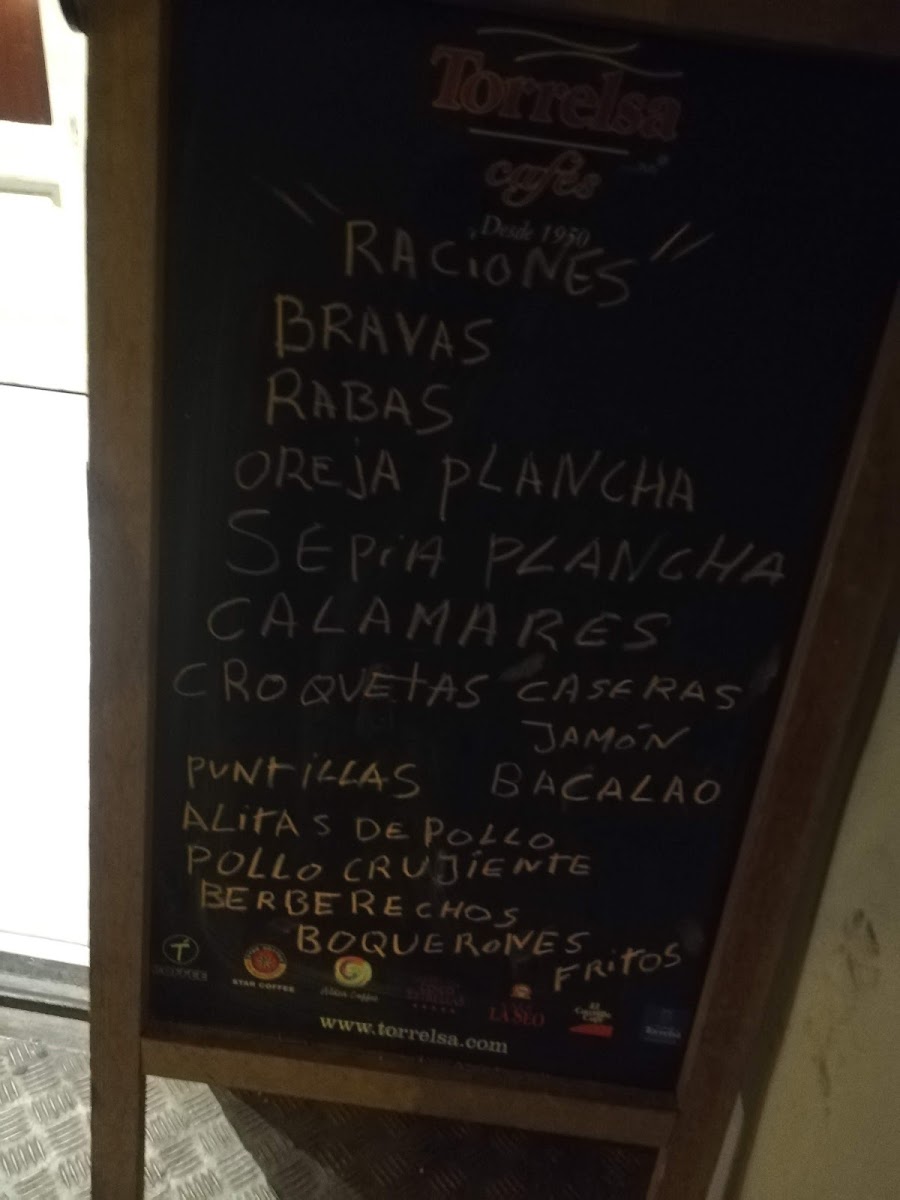 Torrelsa
cafés
Desde 1950
"RACIONES"
BRAVAS
RABAS
OREJA PLANCHA
SEPIA PLANCHA
CALAMARES
CROQUETAS CASERAS
JAMÓN
PUNTILLAS BACALAO
ALITAS DE POLLO
POLLO CRUJIENTE
BERBERECHOS
BOQUERONES
FRITOS
STAR COFFEE
LA SEO
www.torrelsa.com